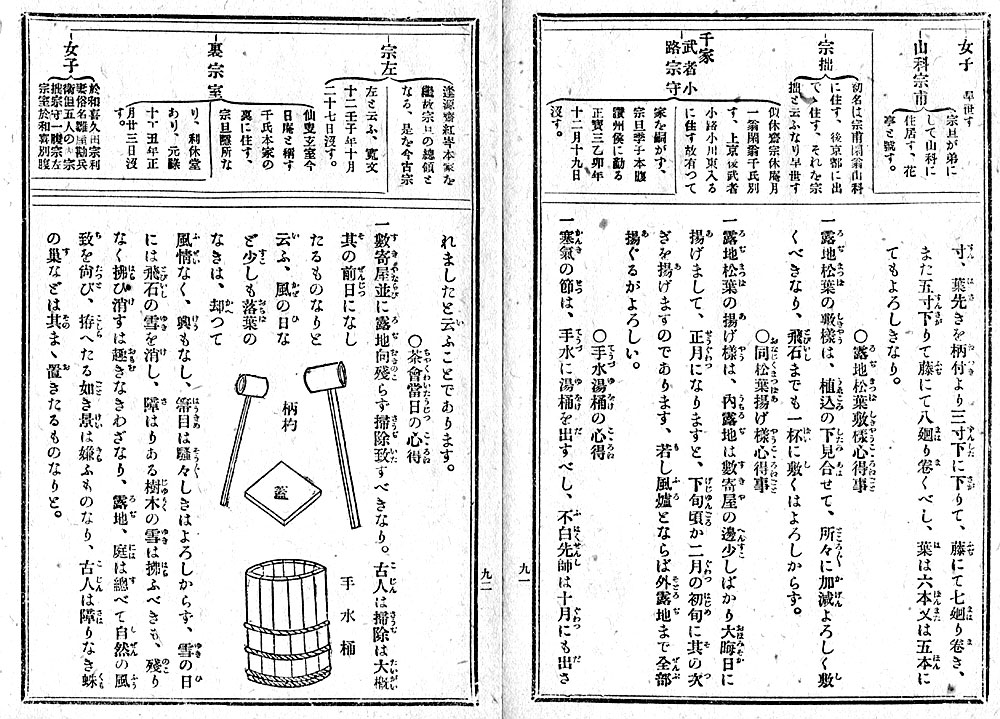 女子
早世す
山科宗甫
宗旦が弟に
して山科に
住居す、花
亭と號す。
宗拙
初名は宗甫閑翁山科
に住す、後京都に出
で、住す、それを宗
拙と云ふなり早世す
千家
武者小
路宗守
似休齋宗休庵月
一翁閑翁千氏別
す、上京後武者
小路小川東入る
に住す、故有つて
家を嗣がす、
宗旦季子本腹
讃州侯に勤る
正寶三乙卯年
十二月十九日
沒す。
寸、葉先きを柄付より三寸下に下りて、藤にて七廻り卷き、
また五寸下りて藤にて八廻り卷くべし、葉は六本又は五本に
てもよろしきなり。
〇露地松葉敷樣心得事
一露地松葉の敷樣は、植込の下見合せて、所々に加減よろしく敷
くべきなり、飛石までも一杯に敷くはよろしからず。
〇同松葉揚げ樣心得事
一露地松葉の揚げ樣は、內露地は數寄屋の邊少しばかり大晦日に
揚げまして、正月になりますと、下旬頃か二月の初旬に其の次
ぎを揚げますのであります、若し風爐とならば外露地まで全部
揚ぐるがよろしい。
〇手水湯桶の心得
一塞氣の節は、手水に湯桶を出すべし、不白先師は十月にも出さ
九一
宗左
逢源齋紅岑本家を
繼故宗旦の總領と
なる、是を今古宗
左と云ふ、寬文
十二壬子年十月
二十七日沒す。
裏宗室
仙叟玄室今
日庵と稱す
千氏本家の
裏に住す、
宗旦隱所な
り、利休堂
あり、元祿
十、丑年正
月廿三日沒
す。
女子
於和喜久田宗利
妻俗名雛屋勘兵
衞但五人の內宗
拙宗守一腹宗左
宗室於和喜別腹
れましたと云ふことであります。
〇茶會當日の心得
一數寄屋並に露地向殘らず掃除致すべきなり。古人は掃除は大槪
其の前日になし
たるものなりと
云ふ、風の日な
ど少しも落葉の
なきは、却つて
風情なく、興もなし、箒目は騷々しきはよろしからず、雪の日
には飛石の雪を消し、障はりある樹木の雪は拂ふべきも、殘り
なく拂ひ消すは趣きなきわざなり、露地、庭は總べて自然の風
致を尙び、拵へたる如き景は嫌ふものなり、古人は障りなき蛛
の巢などは其まゝ置きたるものなりと。
柄杓
蓋
手水桶
九二